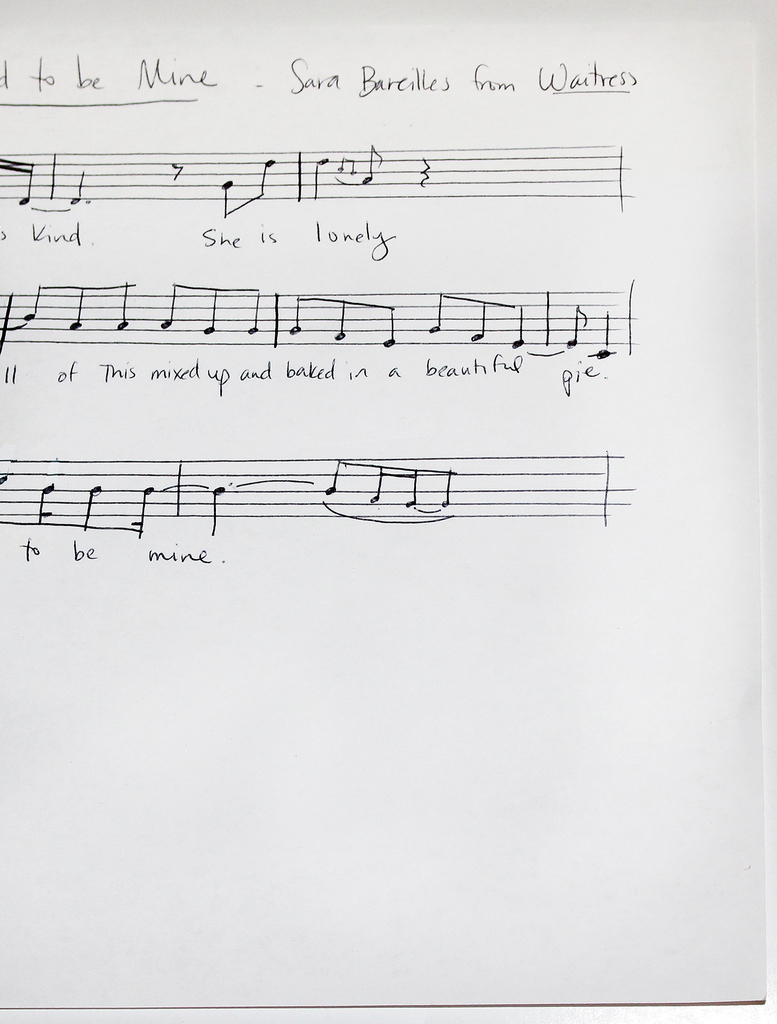 d to be Mine - Sara Bareilles from Waitress
s Kind. She is lonely
ll of This mixed up and baked in a beautiful pie.
to be mine.